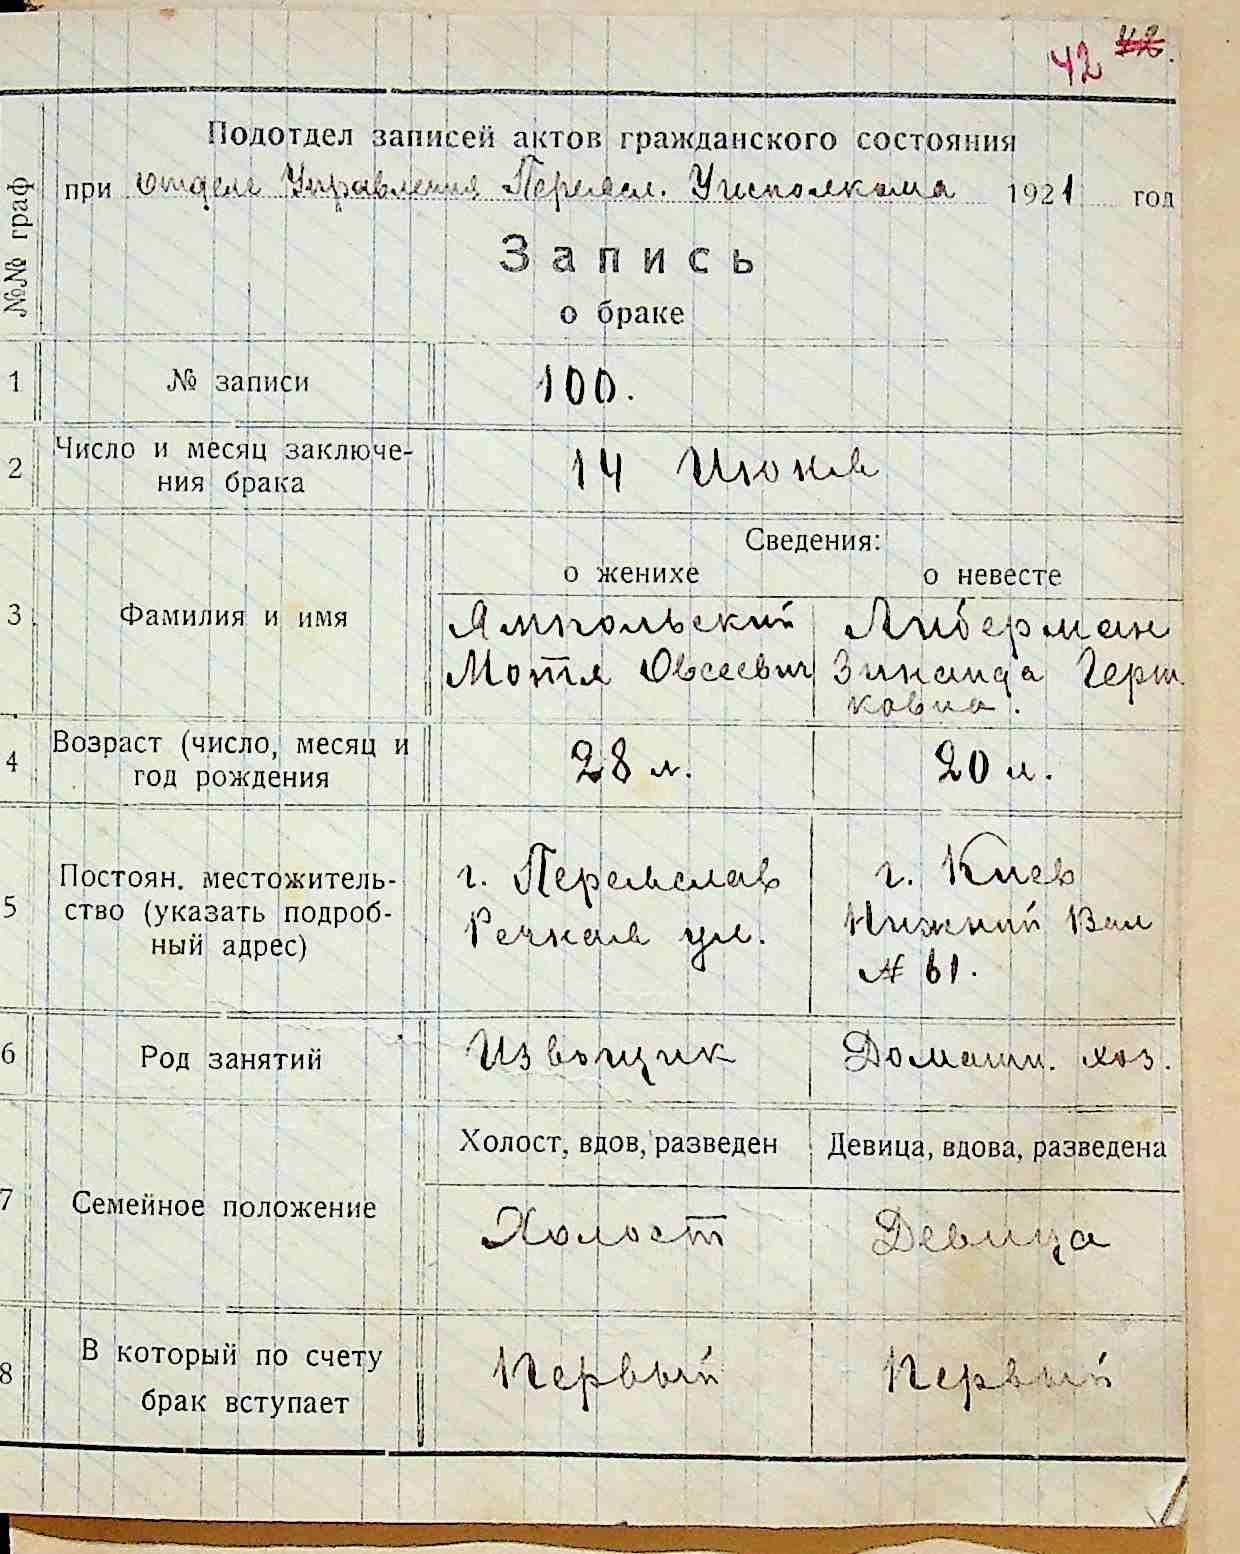 42 42.
Подотдел записей актов гражданского состояния
при отделе Управления Переясл. Уисполкома 1921 год
№№ граф
Запись
о браке
1 № записи 100.
2 Число и месяц заключе-
ния брака 14 Июня
Сведения:
о женихе о невесте
3 Фамилия и имя Ямпольский Либерман
Мотя Овсеевич Зинаида Герш
ковна.
4 Возраст (число, месяц и
год рождения 28 л. 20 л.
5 Постоян. местожитель-
ство (указать подроб-
ный адрес)
г. Переяслав г. Киев
Речная ул. Нижний Вал
№ 61.
6 Род занятий Извощик Домашн. хоз.
Холост, вдов, разведен Девица, вдова, разведена
7 Семейное положение Холост Девица
8 В который по счету
брак вступает Первый Первый